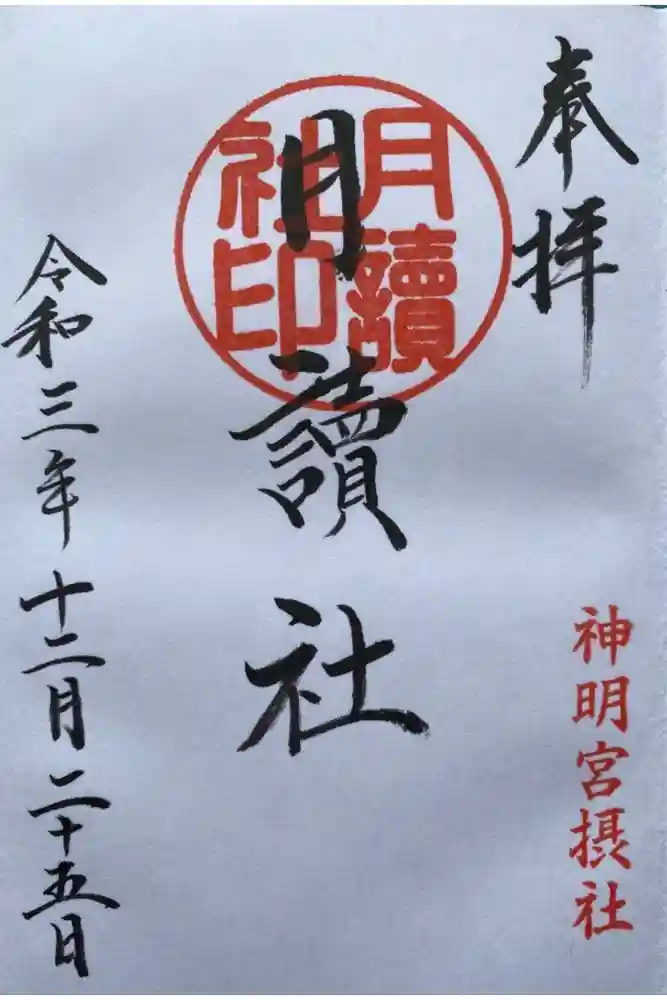 奉拝
神明宮摂社
月讀社
月讀
社印
令和三年十二月二十五日